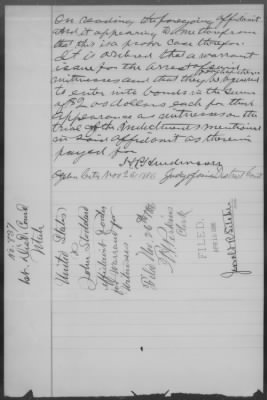 On reading the foregoing affidavit
and it appearing to me therefrom
that this is a proper case therefor
It is ordered that a warrant
issue for the arrest of said
witnesses and that they be required
to enter into bonds in the sum
of $200 dollars each for their
appearance as witnesses on the
trial of the Indictment mentioned
in said affidavit as therein
prayed for
Ogden City Nov 26 1886 Judge of said District Court
No 797
1st Dist Court
Utah
United States
vs
John Stoddard
Affidavit & order
for Warrant for
Witnesses
Filed Nov. 26th 1886
Clerk
FILED